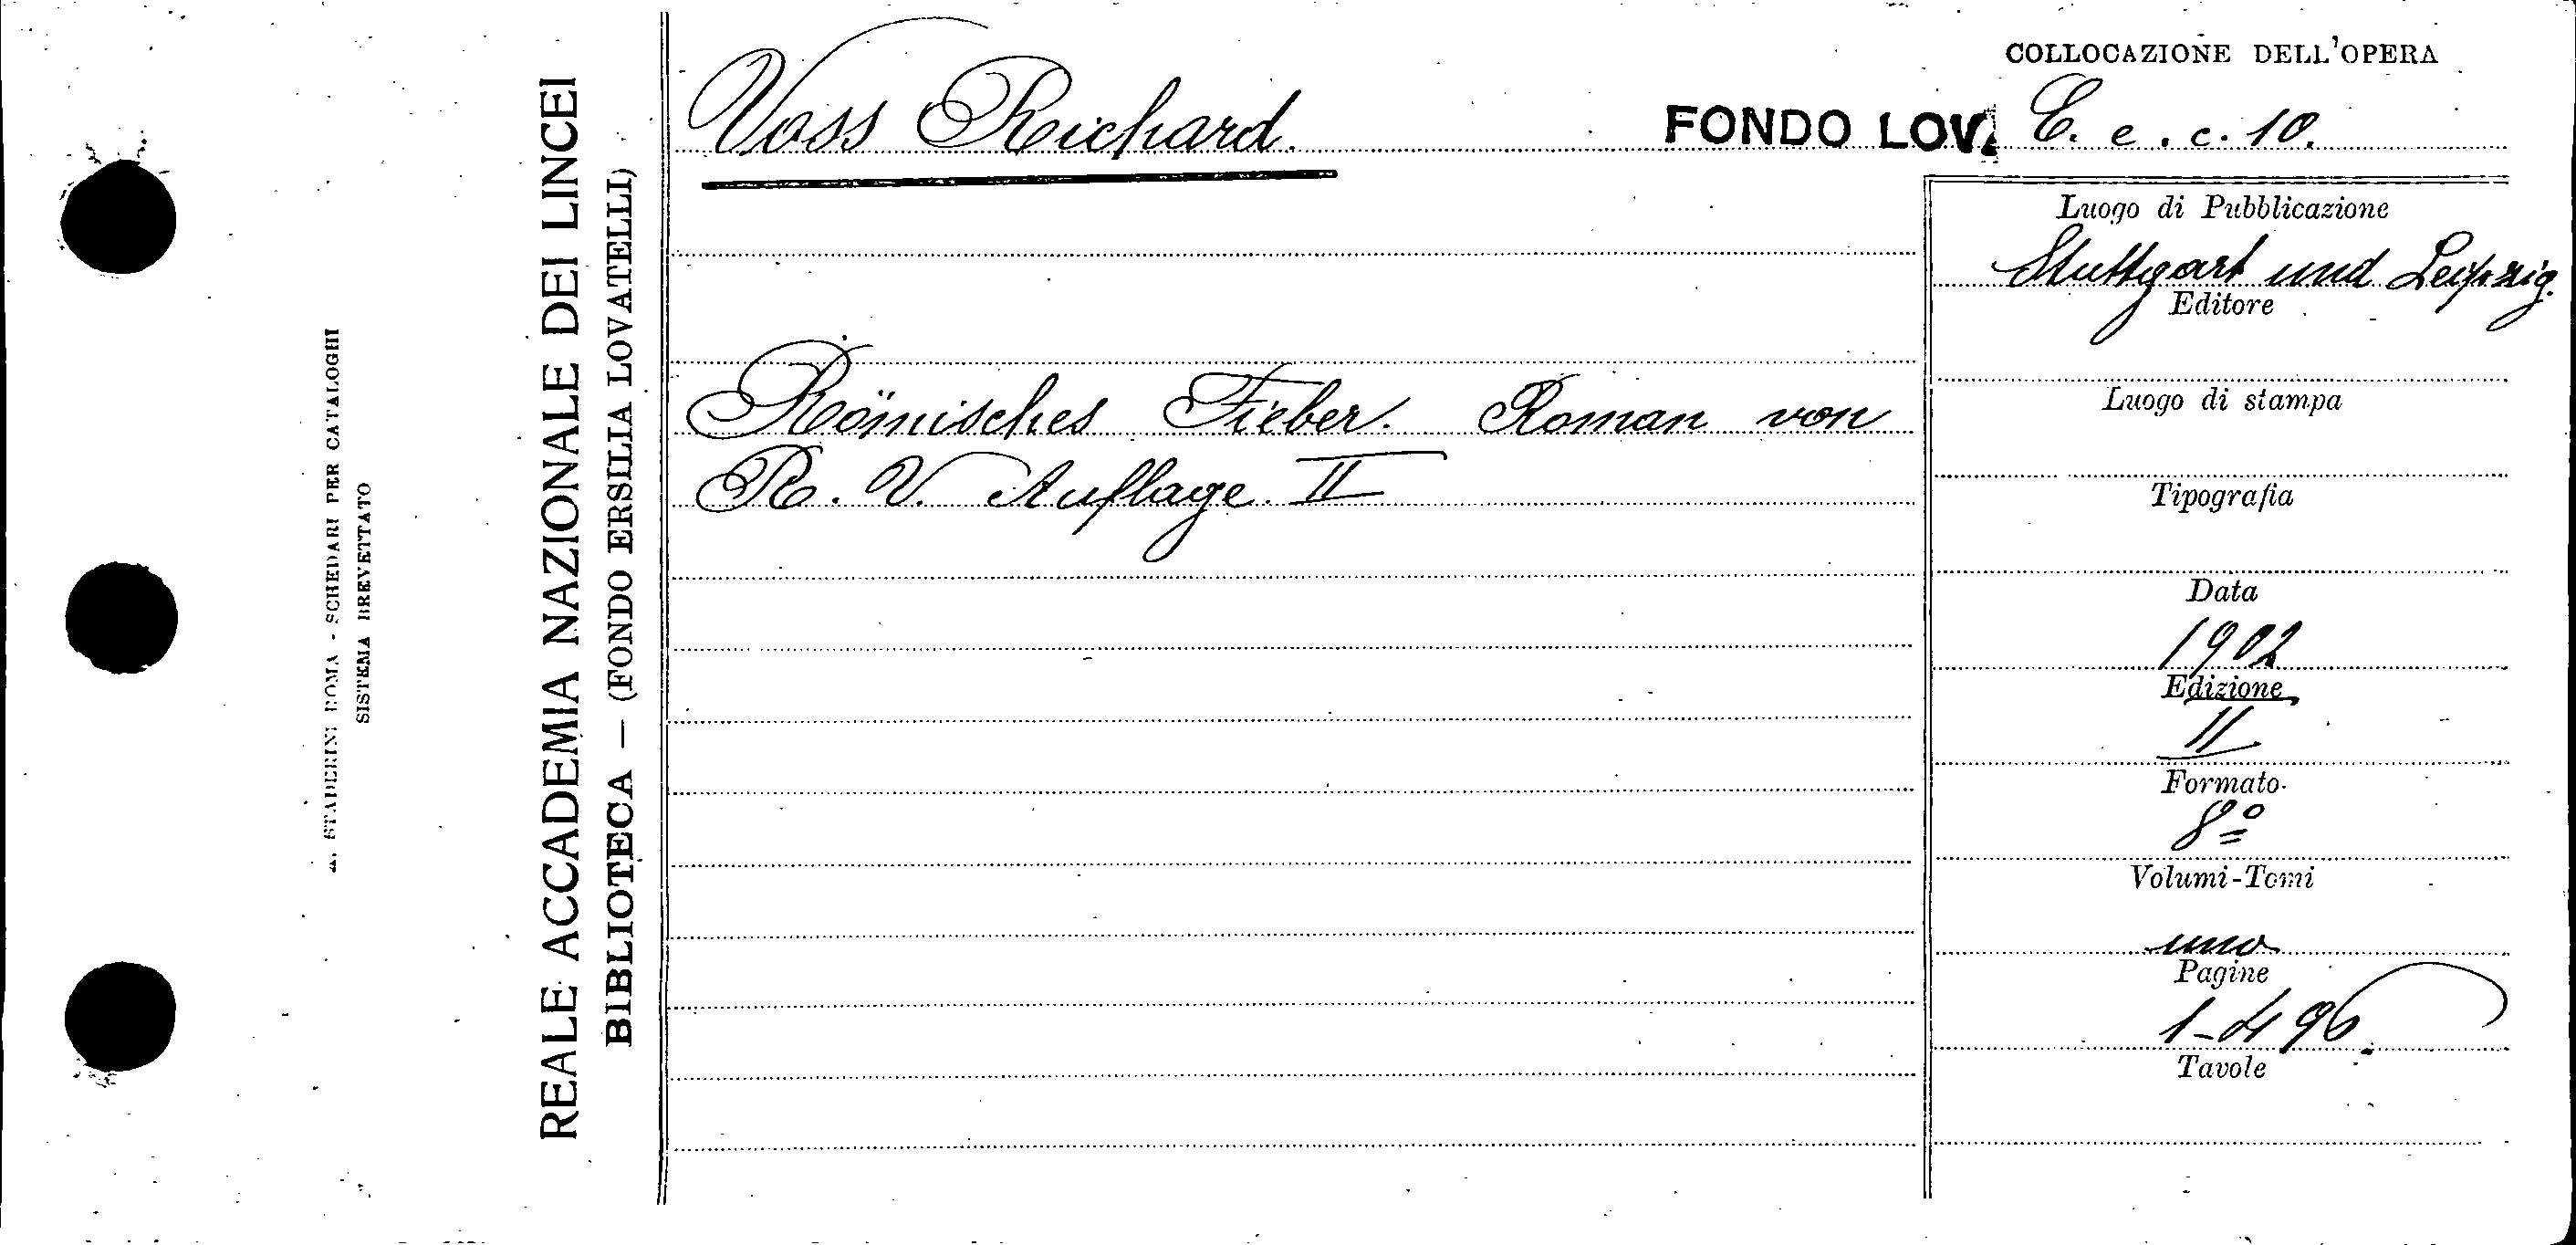 COLLOCAZIONE DELL'OPERA
Voss Richard.
FONDO LOV. E. e. c. 10.
REALE ACCADEMIA NAZIONALE DEI LINCEI
BIBLIOTECA — (FONDO ERSILIA LOVATELLI)
STADERINI ROMA - SCHEDARI PER CATALOGHI
SISTEMA BREVETTATO
Römisches Fieber. Roman von
R. V. Auflage II
Luogo di Pubblicazione
Stuttgart und Leipzig.
Editore
Luogo di stampa
Tipografia
Data
1902
Edizione
II
Formato
8º
Volumi-Tomi
uno
Pagine
1-496.
Tavole